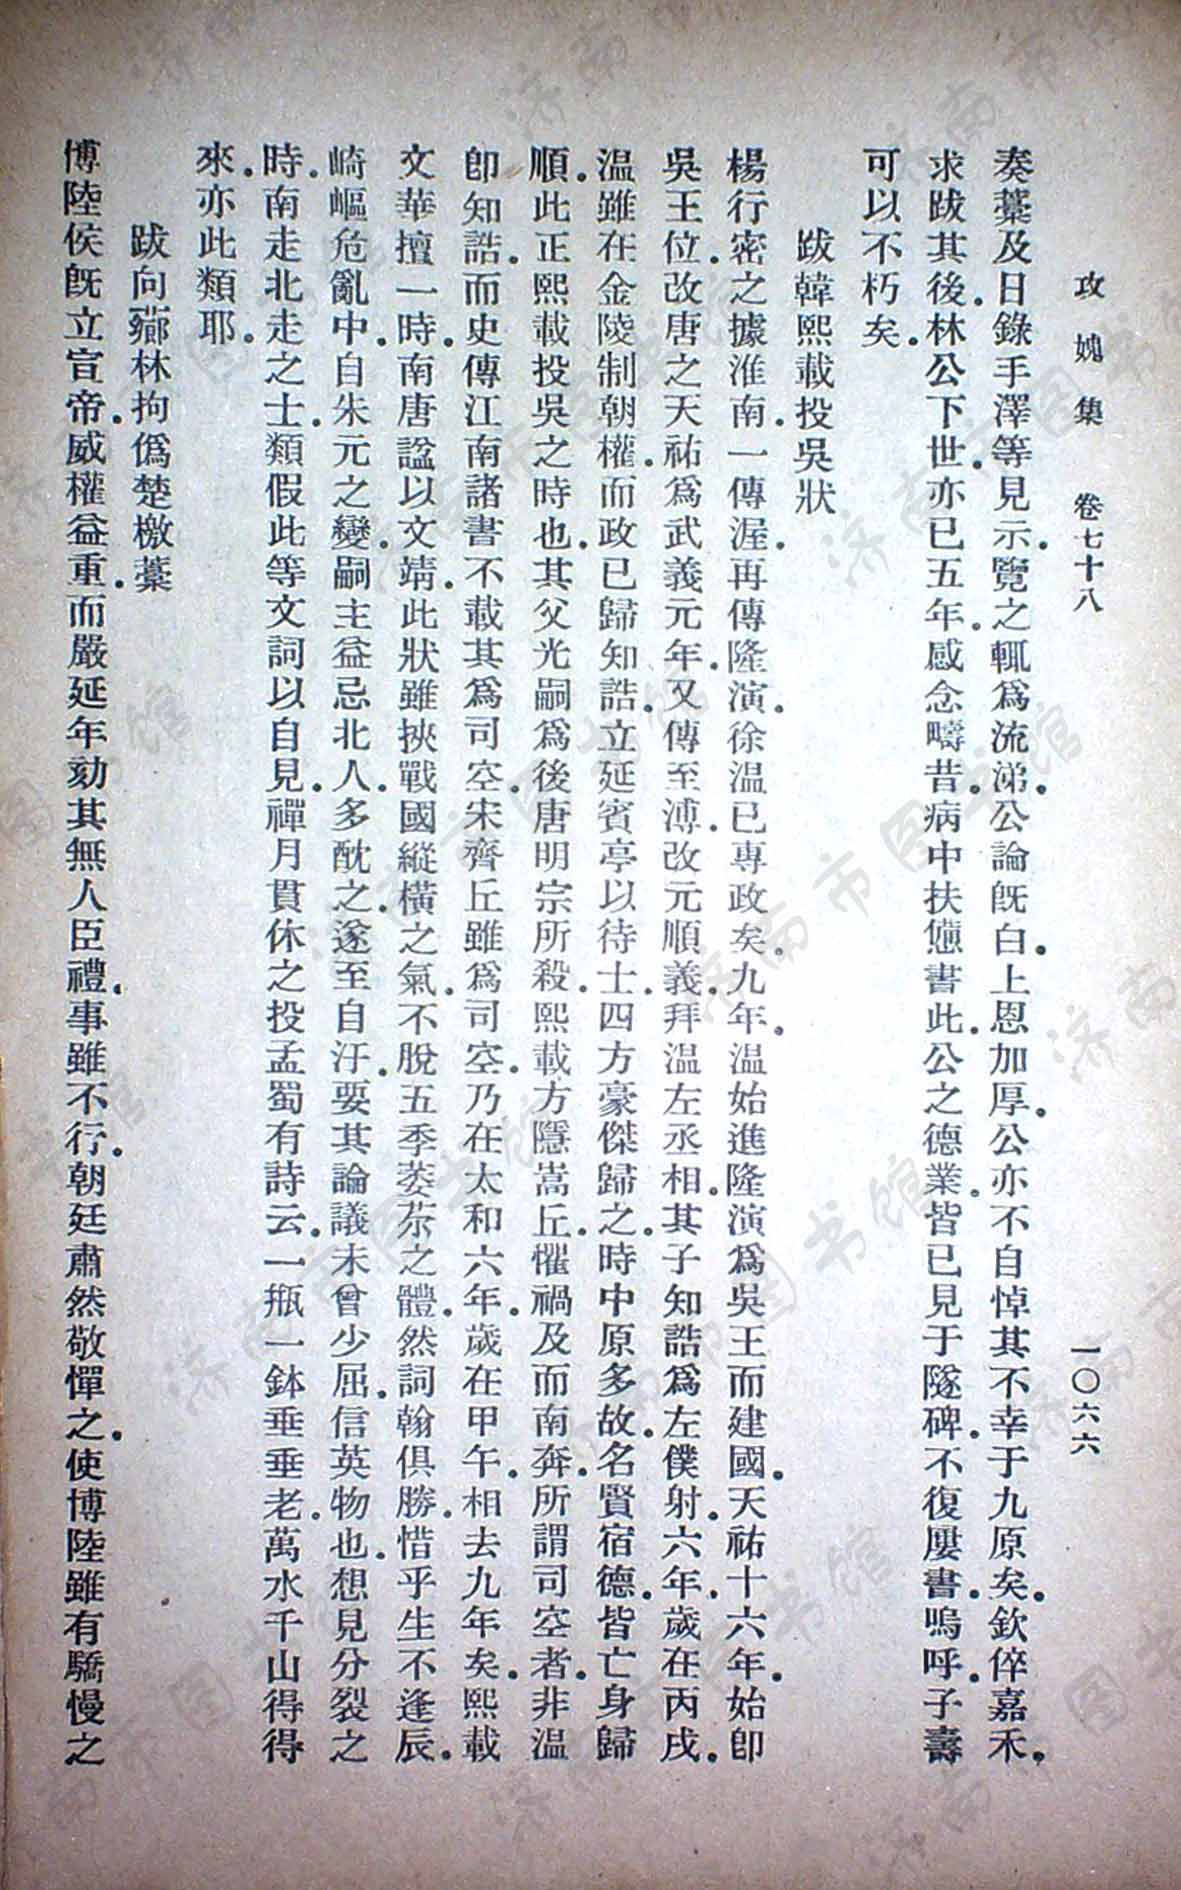 攻媿集　卷七十八　一〇六六
奏藁及日錄手澤等見示。覽之輒爲流涕。公論既白。上恩加厚。公亦不自悼其不幸于九原矣。欽倅嘉禾。
求跋其後。林公下世。亦已五年。感念疇昔。病中扶憊書此。公之德業。皆已見于隧碑。不復屢書。嗚呼。子壽
可以不朽矣。
跋韓熙載投吳狀
楊行密之據淮南。一傳渥。再傳隆演。徐温已專政矣。九年。温始進隆演爲吳王而建國。天祐十六年。始即
吳王位。改唐之天祐爲武義元年。又傳至溥。改元順義。拜温左丞相。其子知誥爲左僕射。六年。歲在丙戌。
温雖在金陵制朝權。而政已歸知誥。立延賓亭以待士。四方豪傑歸之。時中原多故。名賢宿德。皆亡身歸
順。此正熙載投吳之時也。其父光嗣爲後唐明宗所殺。熙載方隱嵩丘。懼禍及而南奔。所謂司空者。非温
即知誥。而史傳江南諸書。不載其爲司空。宋齊丘雖爲司空。乃在太和六年。歲在甲午。相去九年矣。熙載
文華擅一時。南唐諡以文靖。此狀雖挾戰國縱橫之氣。不脫五季萎苶之體。然詞翰俱勝。惜乎生不逢辰。
崎嶇危亂中。自朱元之變。嗣主益忌北人。多酖之。遂至自汙。要其論議未曾少屈。信英物也。想見分裂之
時。南走北走之士。類假此等文詞以自見。禪月貫休之投孟蜀有詩云。一瓶一鉢垂垂老。萬水千山得得
來。亦此類耶。
跋向薌林拘僞楚檄藁
博陸侯既立宣帝。威權益重。而嚴延年劾其無人臣禮。事雖不行。朝廷肅然敬憚之。使博陸雖有驕慢之
济南市图书馆